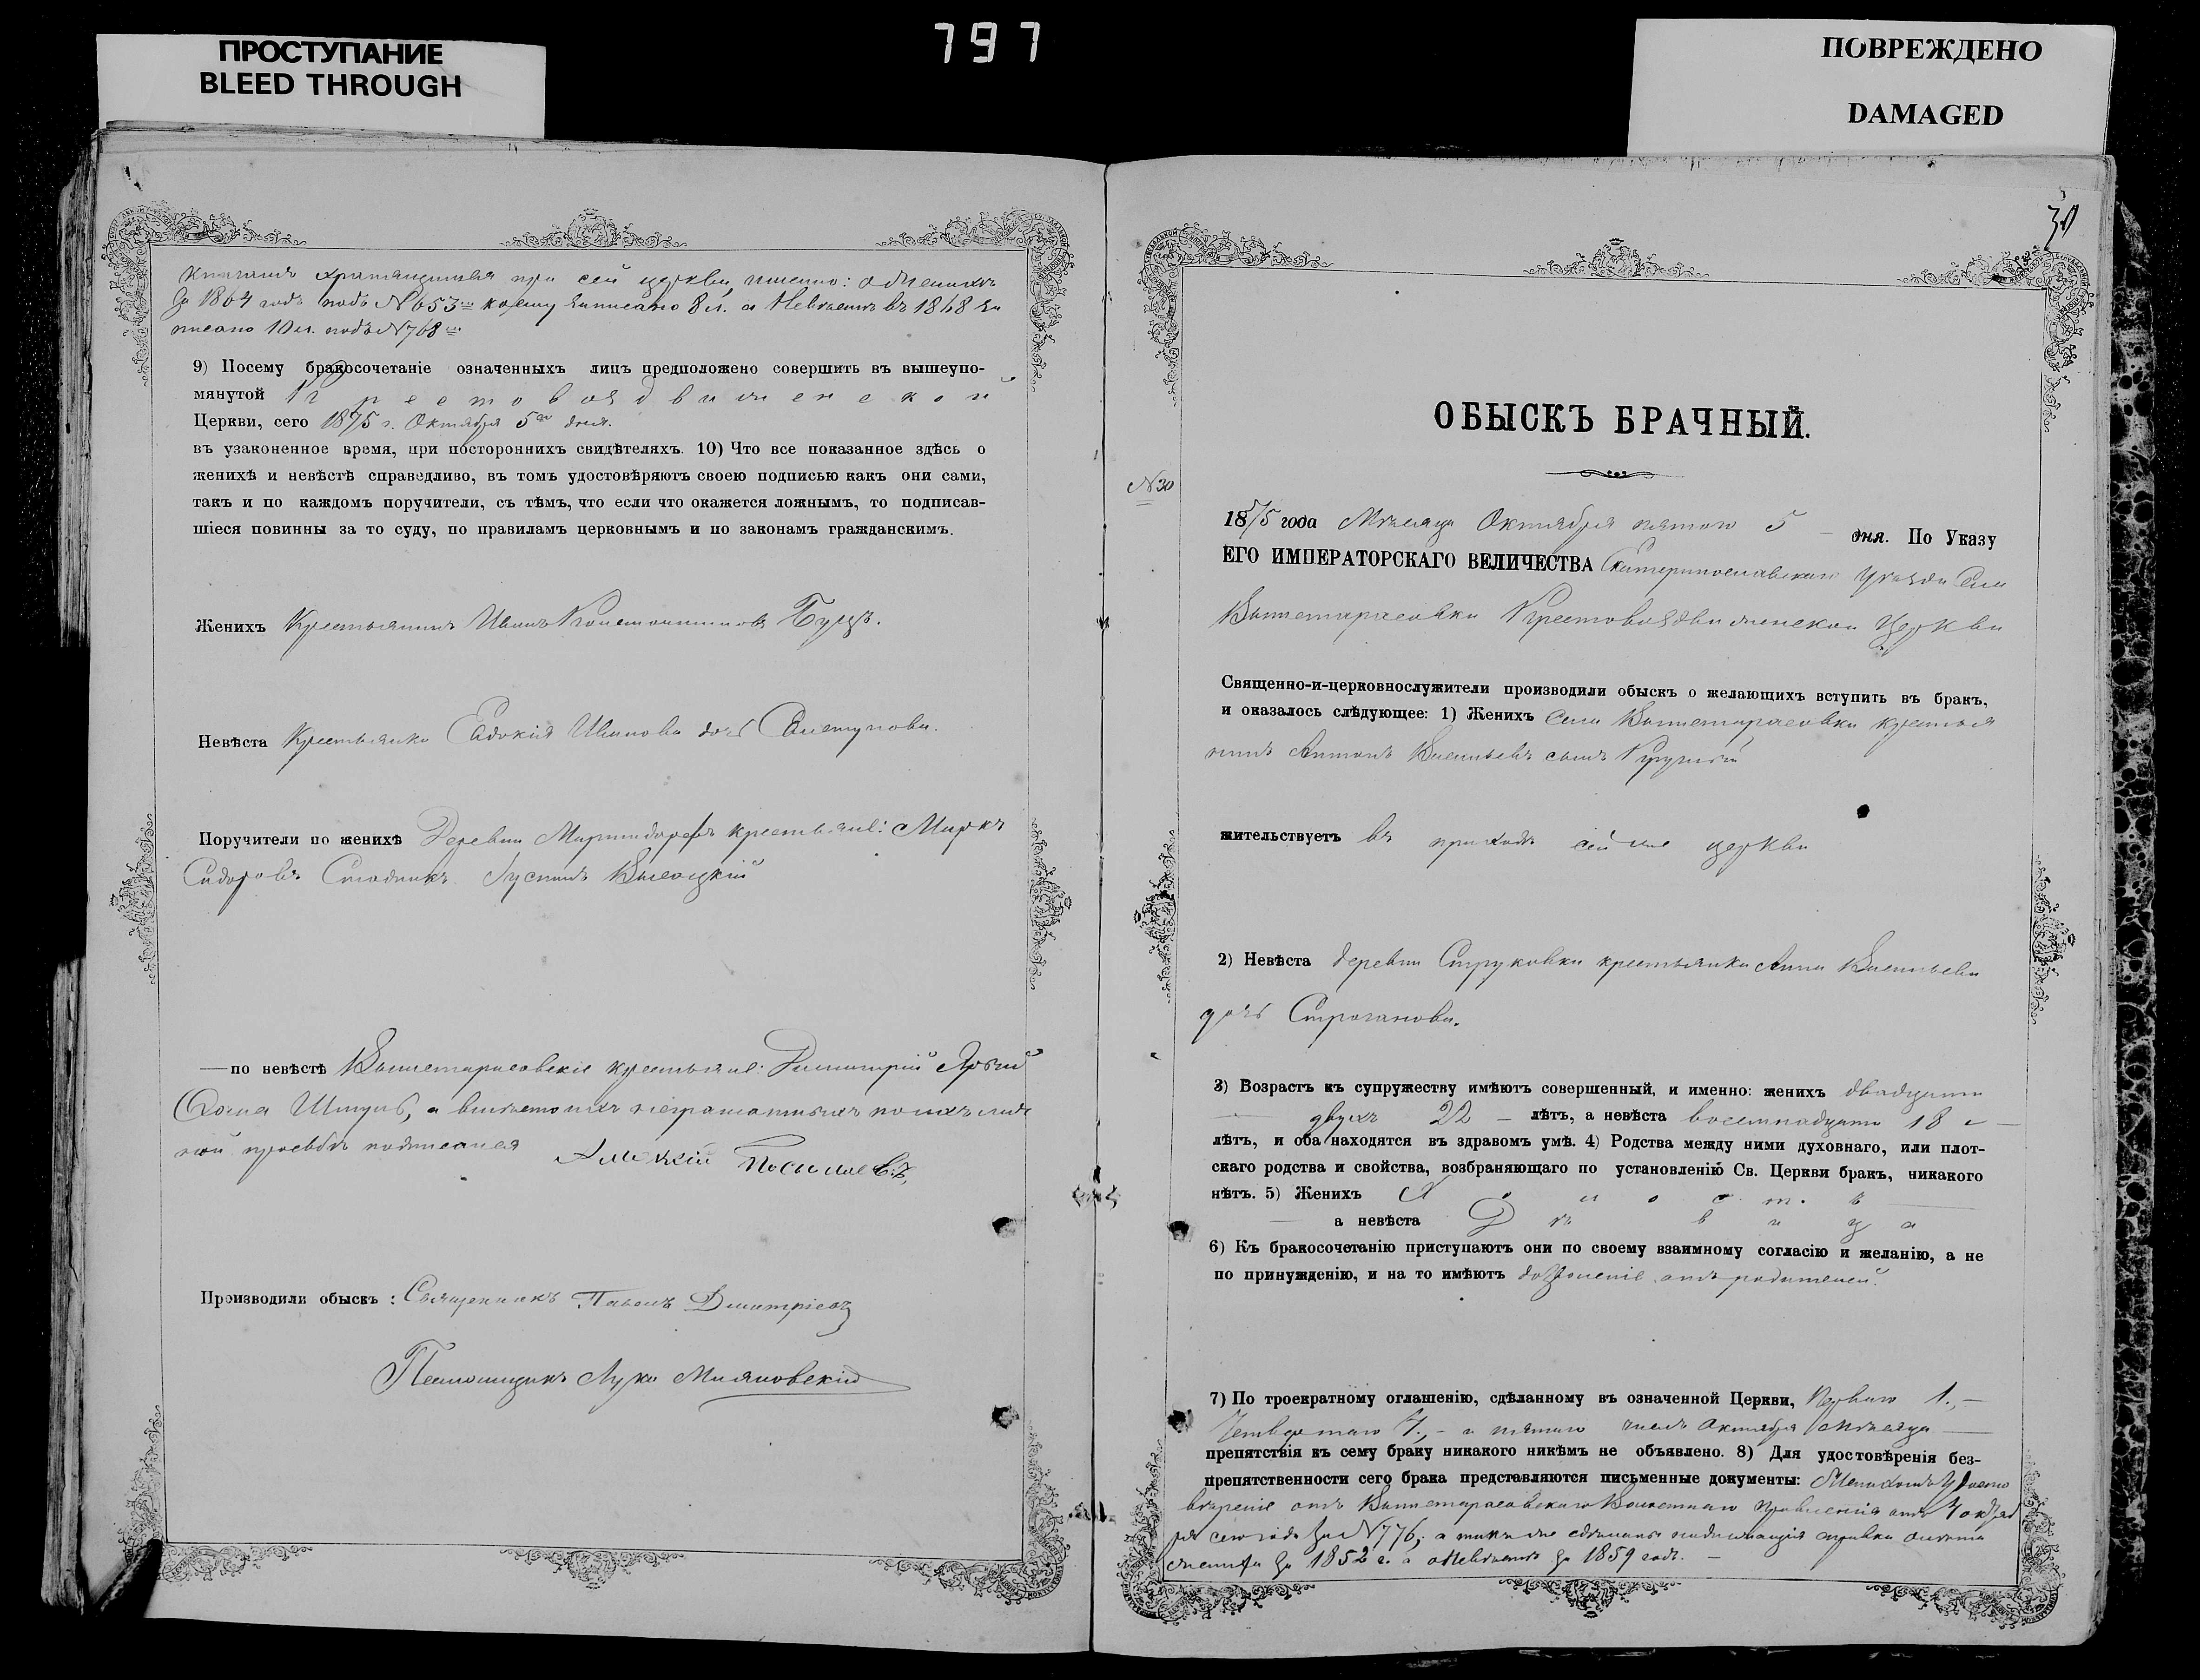 ПРОСТУПАНИЕ
BLEED THROUGH
797
ПОВРЕЖДЕНО
DAMAGED
при сей церкви, именно: о Женихѣ
за 1864 годъ подъ № 653 м. а Невѣстѣ въ 1868 за
писано 10 м. подъ № 768
9) Посему бракосочетаніе означенныхъ лицъ предположено совершить въ вышеупо-
мянутой Крестовоздвиженской
Церкви, сего 1875 г. Октября 5го дня.
въ узаконенное время, при постороннихъ свидѣтеляхъ. 10) Что все показанное здѣсь о
женихѣ и невѣстѣ справедливо, въ томъ удостовѣряютъ своею подписью какъ они сами,
такъ и по каждомъ поручители, съ тѣмъ, что если что окажется ложнымъ, то подписав-
шіеся повинны за то суду, по правиламъ церковнымъ и по законамъ гражданскимъ.
Женихъ Крестьянинъ Иванъ Константиновъ Буцъ.
Невѣста Крестьянка Евдокія Иванова дочь
Поручители по женихѣ Деревни крестьяне: Марко
Сидоровъ Высоцкій
—по невѣстѣ Вышетарасовскіе крестьяне: Димитрій Яровой
а вмѣсто ихъ неграмотныхъ по ихъ лич
ной просьбѣ подписался Алексій
Производили обыскъ: Священникъ Павелъ Димитріевъ
Псаломщикъ Лука Мияновскій
30
ОБЫСКЪ БРАЧНЫЙ.
№ 30
1875 года Мѣсяца Октября пятого 5 — дня. По Указу
ЕГО ИМПЕРАТОРСКАГО ВЕЛИЧЕСТВА Екатеринославскаго уѣзда Села
Вышетарасовки Крестовоздвиженской Церкви
Священно-и-церковнослужители производили обыскъ о желающихъ вступить въ бракъ,
и оказалось слѣдующее: 1) Женихъ Села Вышетарасовки крестья
нинъ Антонъ Васильевъ сынъ
жительствуетъ въ приходѣ сей же церкви
2) Невѣста деревни Струковки крестьянка Анна Васильева
дочь Строганова.
3) Возрастъ къ супружеству имѣютъ совершенный, и именно: женихъ двадцати
— двухъ 22 — лѣтъ, а невѣста восемнадцати 18 —
лѣтъ, и оба находятся въ здравомъ умѣ. 4) Родства между ними духовнаго, или плот-
скаго родства и свойства, возбраняющаго по установленію Св. Церкви бракъ, никакого
нѣтъ. 5) Женихъ Холостъ
— а невѣста Дѣвица
6) Къ бракосочетанію приступаютъ они по своему взаимному согласію и желанію, а не
по принужденію, и на то имѣютъ дозволеніе отъ родителей.
7) По троекратному оглашенію, сдѣланному въ означенной Церкви, Перваго 1., —
Четвертаго 4., — и пятаго числъ Октября Мѣсяца
препятствія къ сему браку никакого никѣмъ не объявлено. 8) Для удостовѣренія без-
препятственности сего брака представляются письменные документы: Женихомъ Удосто
вѣреніе отъ Вышетарасовскаго Волостнаго Правленія отъ 4 октяб
ря сего года за № 776; а также сдѣланы надлежащія справки о
женихѣ за 1852 г. а о Невѣстѣ за 1859 годъ. —